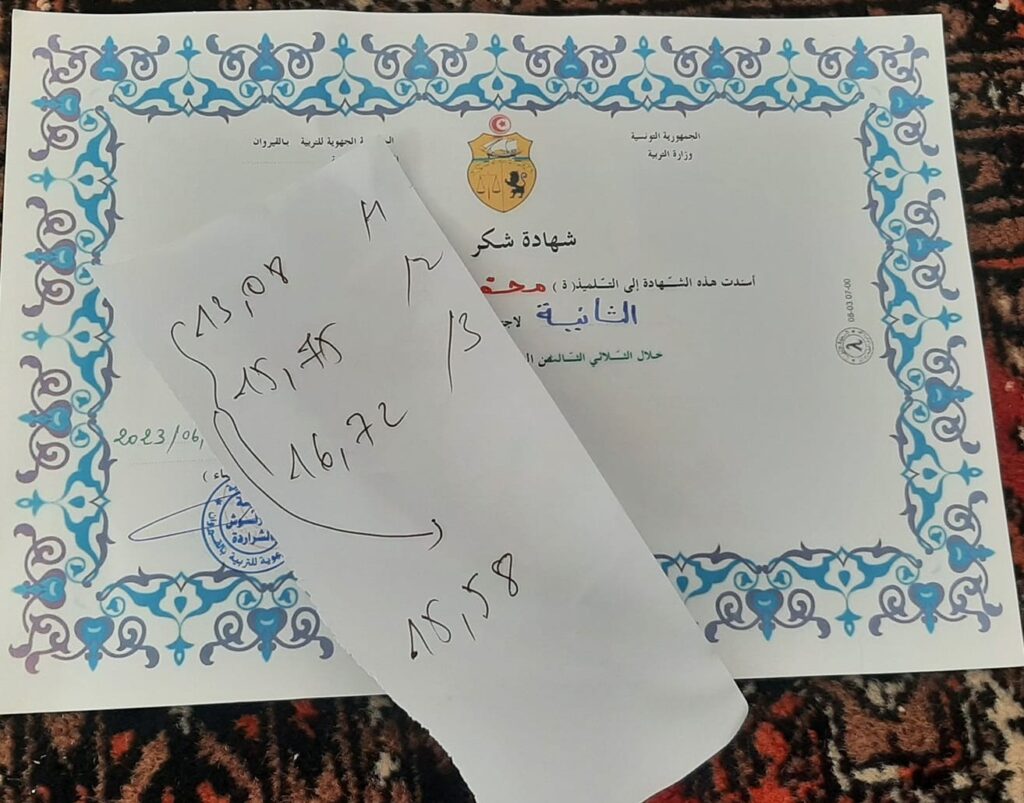 الجمهورية التونسية
وزارة التربية
الجهوية للتربية بالقيروان
شهادة شكر
أسندت هذه الشهادة إلى التلميذ(ة)
الثانية
خلال الثلاثي الثالث
08-03 07-00
2023/06
الشراردة
13,08
15,75
/2
/3
16,72
15,58